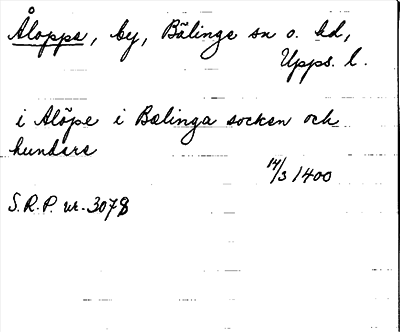 Åloppe, by, Bälinge sn o. hd,
Upps. l.
i Alöpe i Bælinga socken och
hundare
14/3 1400
S.R.P. nr. 3078